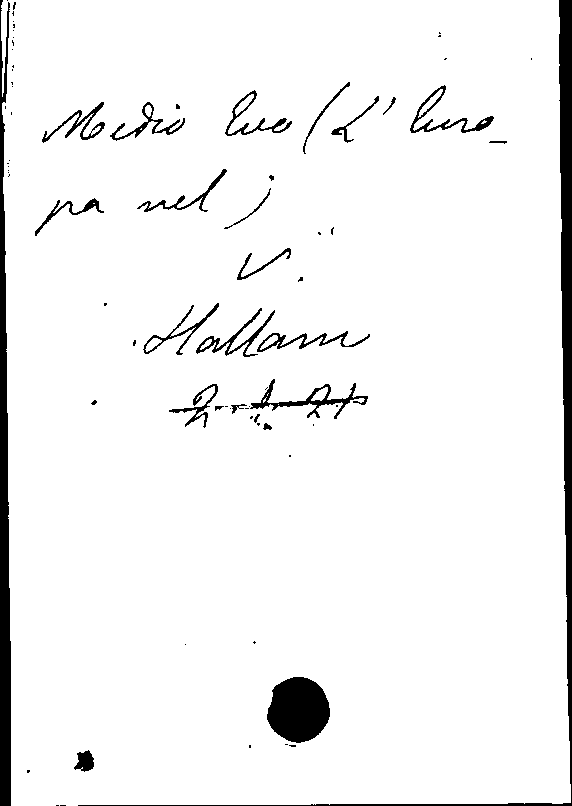 Medio Evo (L' Euro-
pa nel)
V.
Hallam